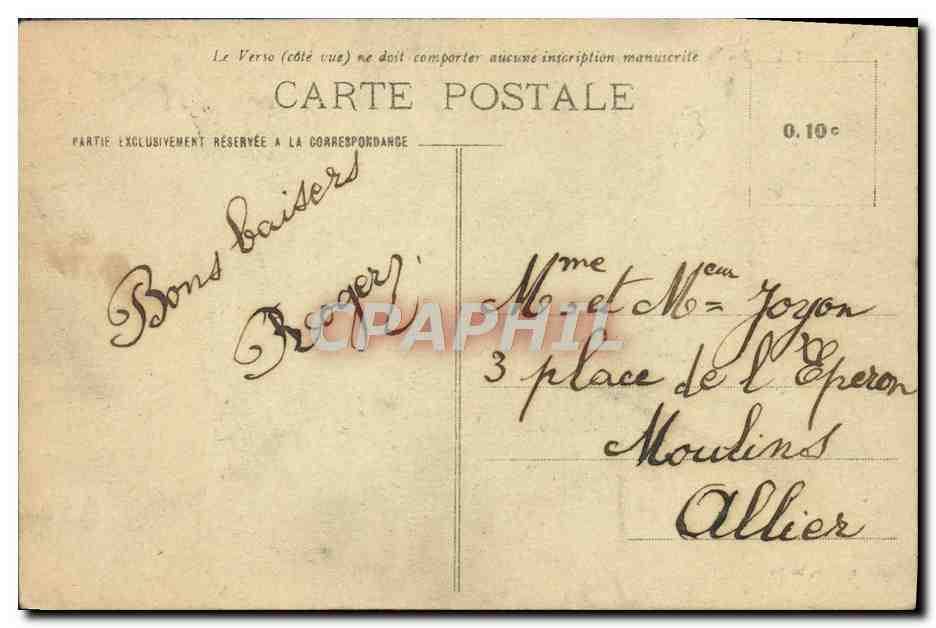 Le Verso (côté vue) ne doit comporter aucune inscription manuscrite
CARTE POSTALE
0.10c
PARTIE EXCLUSIVEMENT RÉSERVÉE A LA CORRESPONDANCE
Bons baisers
Roger
CPAPHIL
Mme et Mr Joyon
3 place de l'Éperon
Moulins
Allier